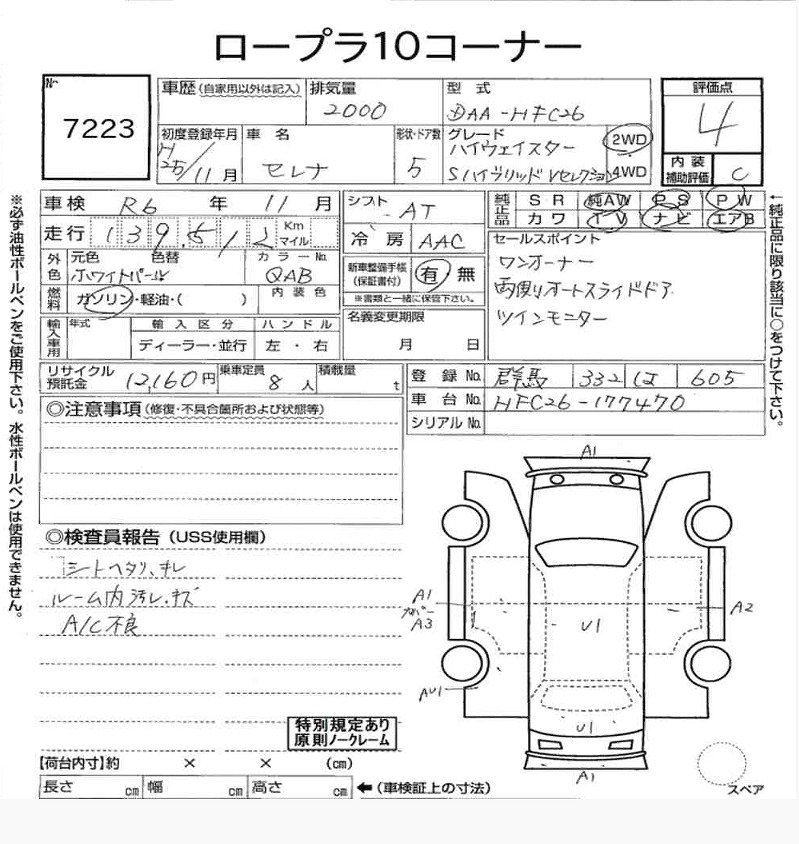 ロープラ10コーナー
№
7223
車歴 (自家用以外は記入)
排気量
2000
型式
DAA-HFC26
評価点
4
初度登録年月
H
25/11月
車名
セレナ
形状・ドア数
5
グレード
ハイウェイスター
Sハイブリッド Vセレクション
2WD
4WD
内装
補助評価
C
車検 R6 年 11 月
走行 139,512 Km
マイル
シフト
AT
冷房 AAC
純正品
SR 純AW PS PW
カワ TV ナビ エアB
外色
元色 色替
ホワイトパール
カラーNo.
QAB
燃料
ガソリン・軽油・( )
内装色
新車整備手帳
(保証書付)
有 無
※書類と一緒に保管下さい。
セールスポイント
ワンオーナー
両側オートスライドドア
ツインモニター
輸入車用
年式
輸入区分
ハンドル
ディーラー・並行
左・右
名義変更期限
月 日
リサイクル
預託金
12,160円
乗車定員
8 人
積載量
t
登録No. 群馬 332 は 605
車台No. HFC26-177470
シリアルNo.
◎注意事項 (修復・不具合箇所および状態等)
◎検査員報告 (USS使用欄)
シートヘタリ、キレ
ルーム内汚レ・キズ
A/C不良
特別規定あり
原則ノークレーム
【荷台内寸】約 × × (cm)
長さ cm 幅 cm 高さ cm ←(車検証上の寸法)
A1
A1
A3
A2
U1
AU1
U1
A1
スペア
※必ず油性ボールペンをご使用下さい。水性ボールペンは使用できません。
←純正品に限り該当に○をつけて下さい。